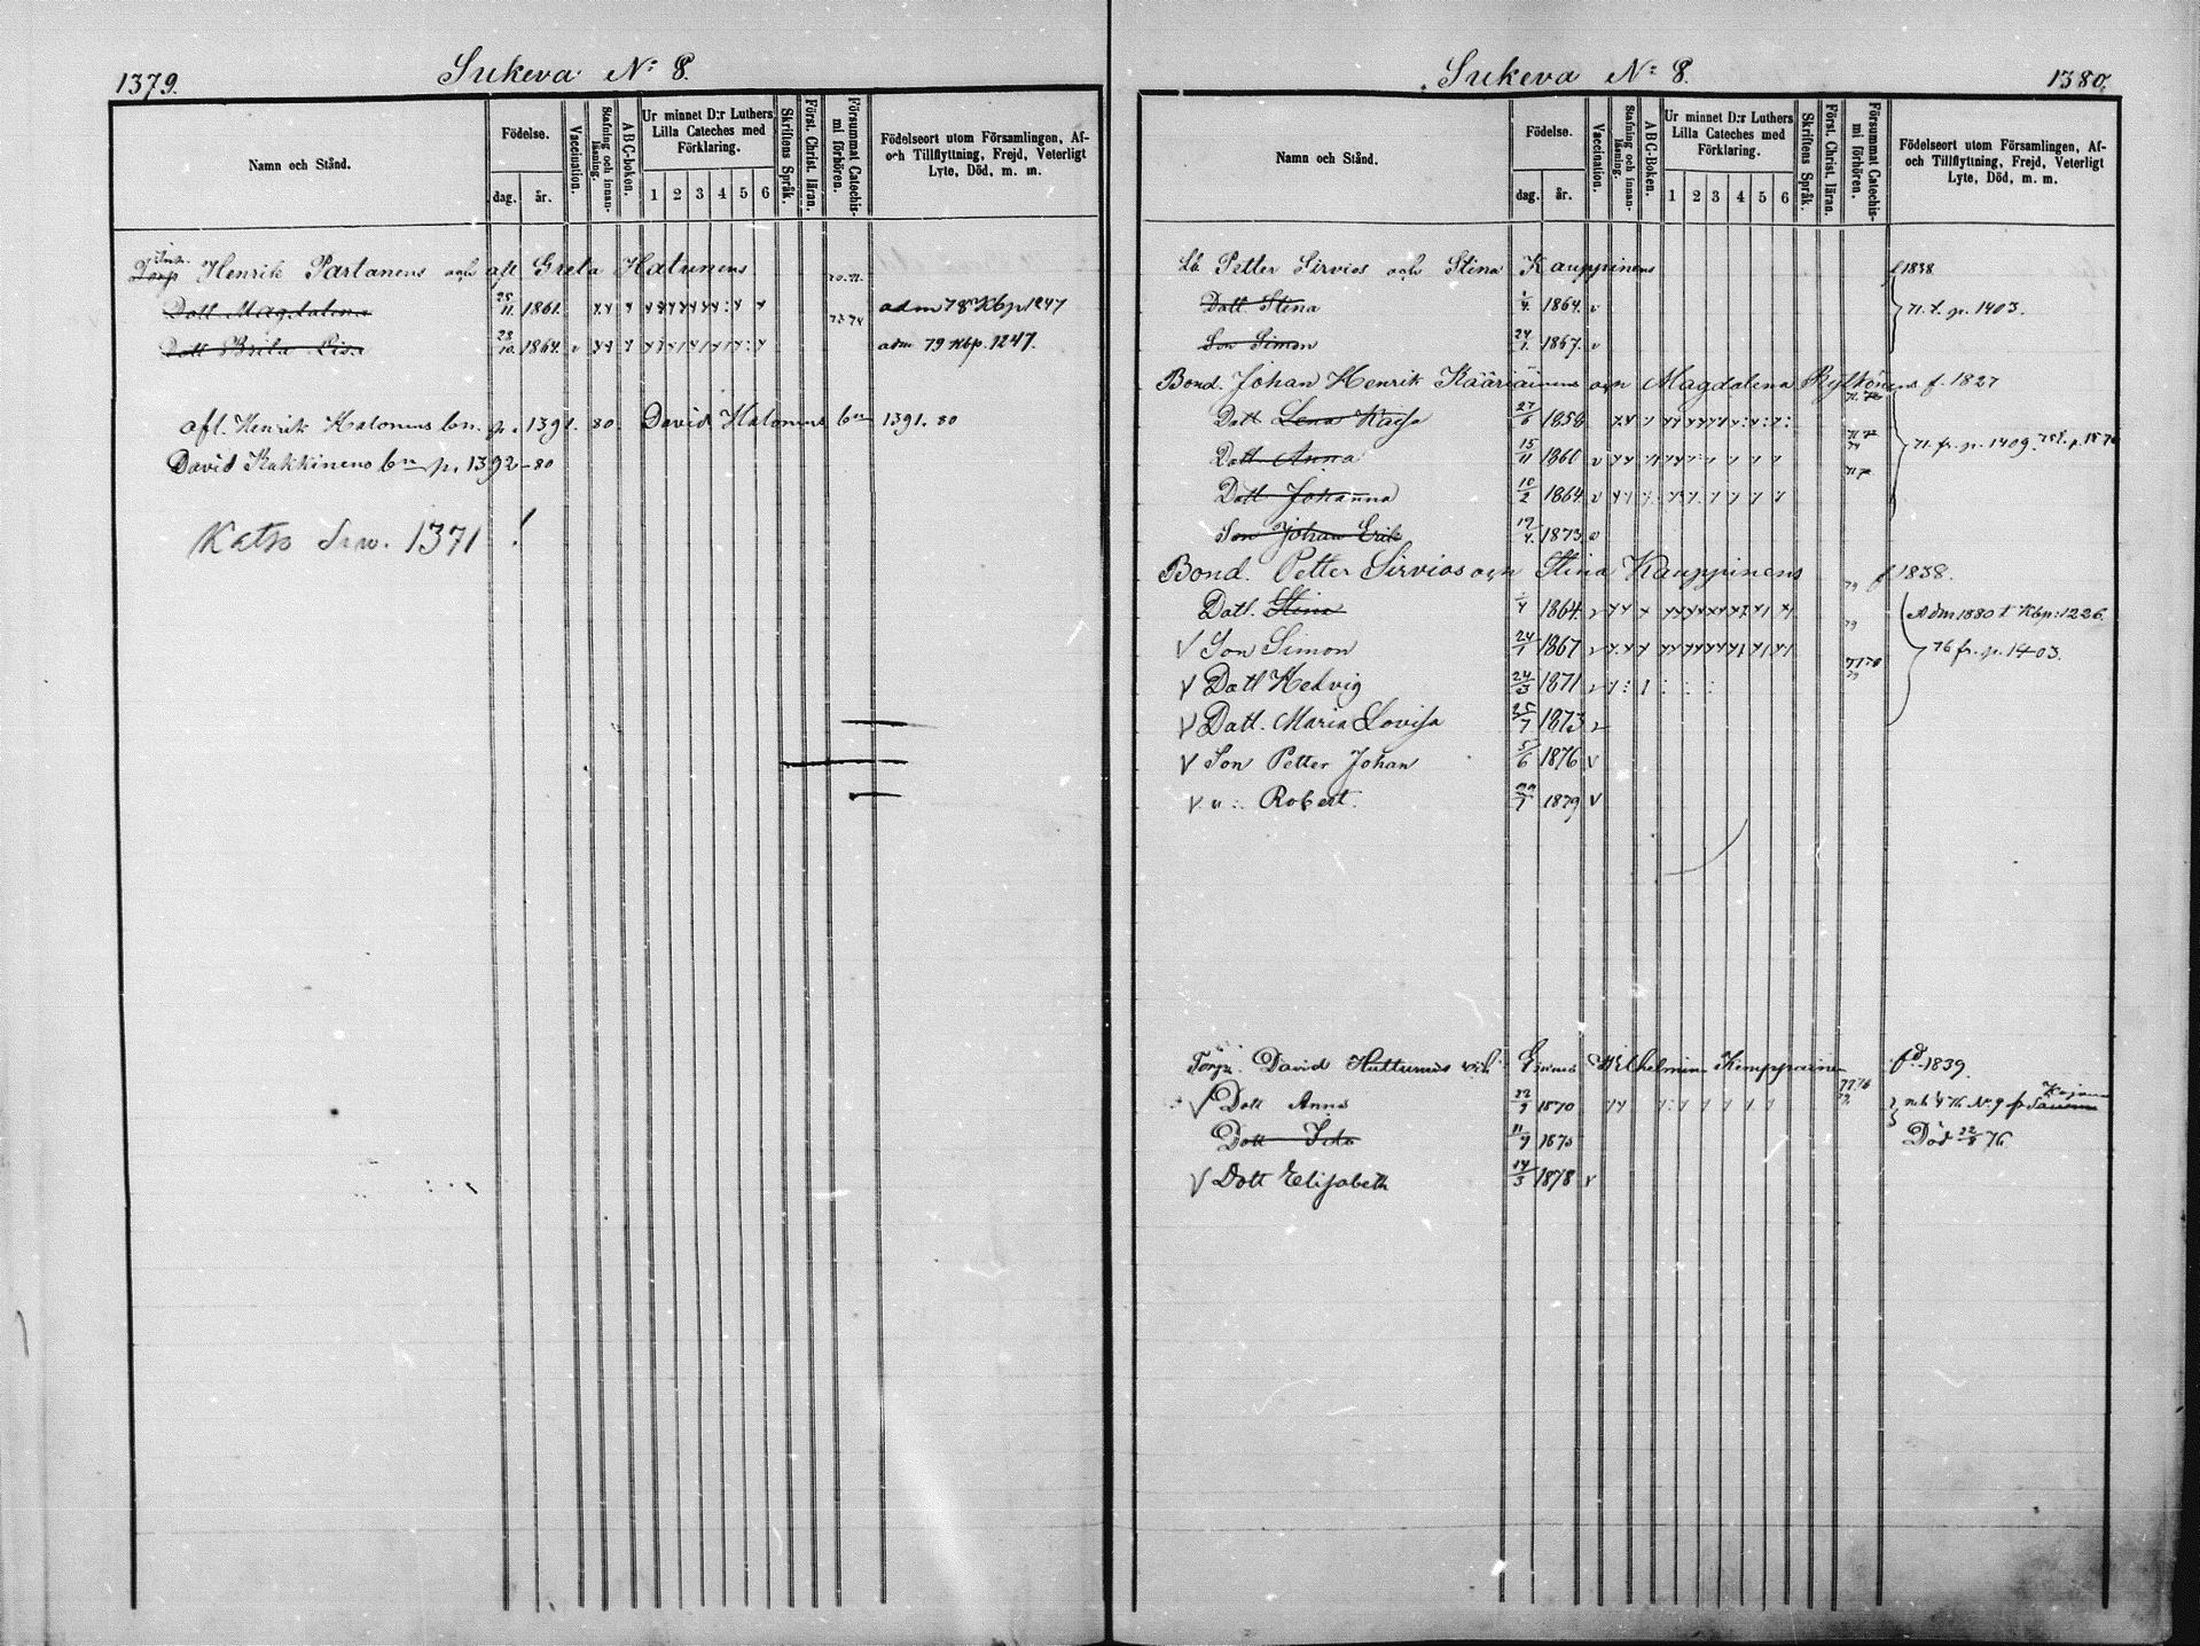 1379.
Sukeva № 8.
Namn och Stånd.
Födelse.
dag.
år.
Vaccination.
Stafning och innanläsning.
A B C-boken.
Ur minnet D:r Luthers Lilla Cateches med Förklaring.
1 2 3 4 5 6
Skriftens Språk.
Först. Christ. läran.
Försummat Catechismi förhören.
Födelseort utom Församlingen, Af- och Tillflyttning, Frejd, Veterligt Lyte, Död, m. m.
Torp Henrik Partanens och afl Greta Hatunens
Dott Magdalena 25/11 1861. 73 74 adm 78 Kbp 1247
Dott Brita Lisa 23/10 1864. v adm 79 Kbp. 1247.
afl. Henrik Halonens bn. p. 1391. 80. David Halonens bn 1391. 80
David Kakkinens bn p. 1392-80
Katso Siw. 1371 !
Sukeva № 8.
1380.
Namn och Stånd.
Födelse.
dag.
år.
Vaccination.
Stafning och innanläsning.
A B C-boken.
Ur minnet D:r Luthers Lilla Cateches med Förklaring.
1 2 3 4 5 6
Skriftens Språk.
Först. Christ. läran.
Försummat Catechismi förhören.
Födelseort utom Församlingen, Af- och Tillflyttning, Frejd, Veterligt Lyte, Död, m. m.
Petter Sirviös och Stina Kauppinens f 1838
Dott Stina 1/4 1864. v 71. t. p. 1403.
Son Simon 24/1 1867. v
Bond. Johan Henrik Kääriäinens och Magdalena Rytkönens f. 1827
Dott Lena Kaisa 27/6 1858
Dott Anna 15/11 1860 v 71. fr. p. 1409.
Dott Johanna 10/2 1864. v
Son Johan Erik 19/4. 1873 v
Bond. Petter Sirviös och Stina Kauppinens 79 f 1838.
Dott. Stina 1/4 1864. v Adm 1880 t Kbp: 1226.
V Son Simon 24/1 1867 v 76 fr. p. 1403.
V Dott Hedvig 24/3 1871 v
V Dott. Maria Lovisa 25/7 1873 v
V Son Petter Johan 5/6 1876 v
V " : Robert. 1879 V
Torp. David Hutturus och Emma Wilhelmina Kemppainen fd 1839.
V Dott Anna 22/9 1870 Kajana
Dott Ida 11/9 1875 Död 22/8 76.
V Dott Elisabeth 14/3 1878 v